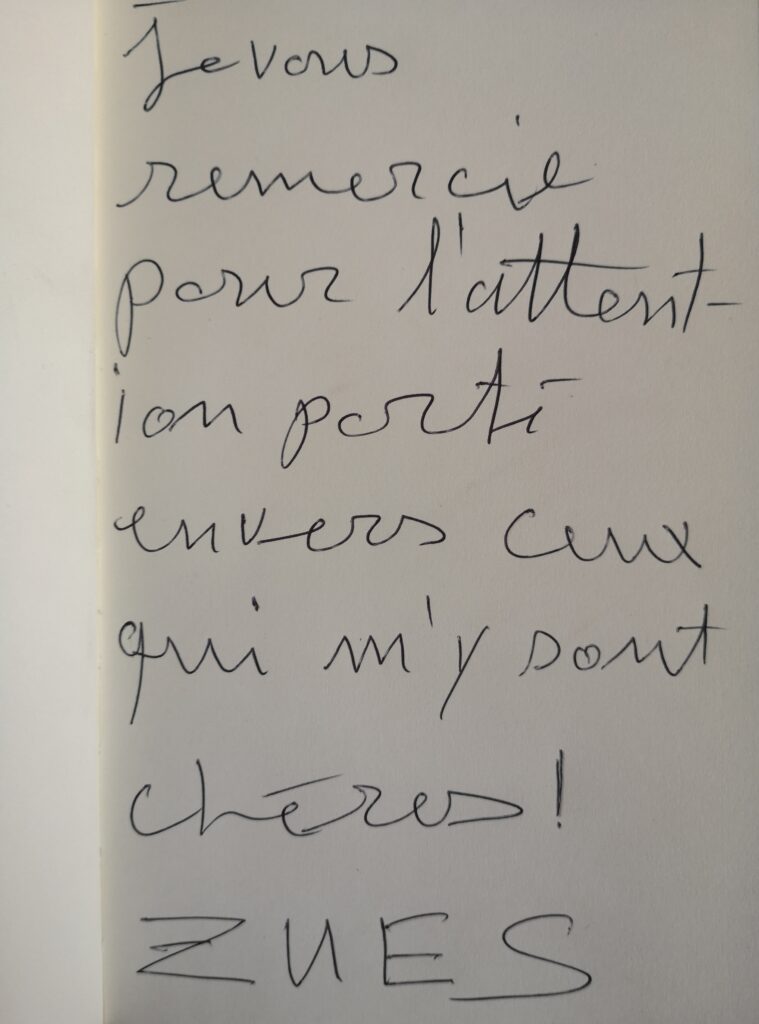 Je vous
remercie
pour l'attent-
ion porté
envers ceux
qui m'y sont
chères!
ZUES